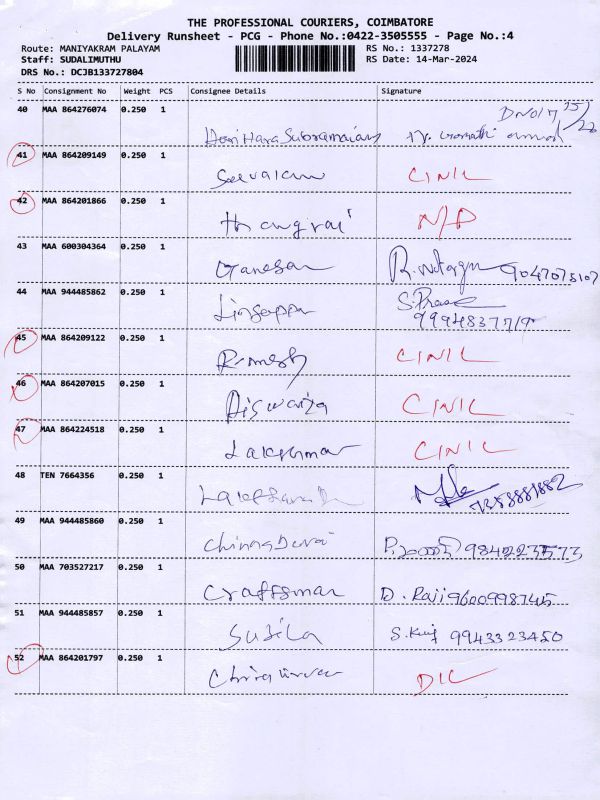 THE PROFESSIONAL COURIERS, COIMBATORE
Delivery Runsheet - PCG - Phone No.:0422-3505555 - Page No.:4
Route: MANIYAKRAM PALAYAM RS No.: 1337278
Staff: SUDALIMUTHU RS Date: 14-Mar-2024
DRS No.: DCJB133727804
S No Consignment No Weight PCS Consignee Details Signature
40 MAA 864276074 0.250 1
41 MAA 864209149 0.250 1 CINIL
42 MAA 864201866 0.250 1 N/P
43 MAA 600304364 0.250 1 Ganesan
44 MAA 944485862 0.250 1
45 MAA 864209122 0.250 1 Rimesh CINIL
46 MAA 864207015 0.250 1 CINIL
47 MAA 864224518 0.250 1 Lakshman CINIL
48 TEN 7664356 0.250 1
49 MAA 944485860 0.250 1 ChinnaDurai
50 MAA 703527217 0.250 1 Craftsman D. Raji 9600998745
51 MAA 944485857 0.250 1 Susila 9943323450
52 MAA 864201797 0.250 1 DIL